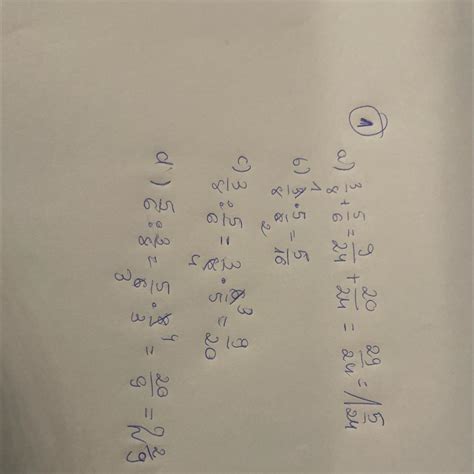 1
a) 3/8 + 5/6 = 9/24 + 20/24 = 29/24 = 1 5/24
b) 3/8 · 5/6 = 5/16
1 2
c) 3/8 : 5/6 = 3/8 · 6/5 = 9/20
4 3
d) 5/6 : 3/8 = 5/6 · 8/3 = 20/9 = 2 2/9
3 4